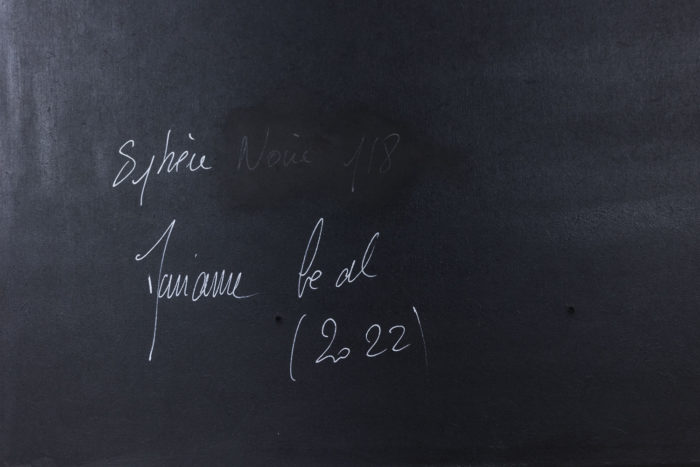 Sphère Noire 118
Marianne
(2022)